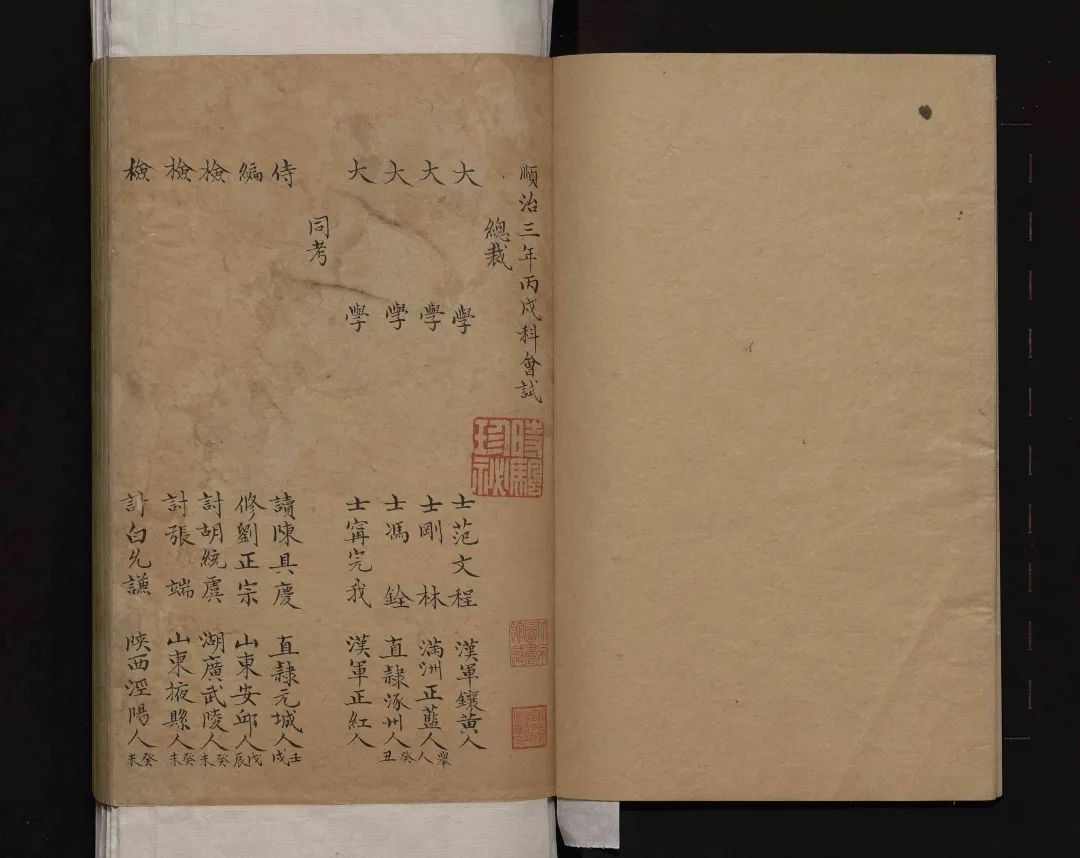 順治三年丙戌科會試
總裁
大學士范文程 漢軍鑲黃人
大學士剛林 滿洲正藍人 舉人
大學士馮銓 直隸涿州人 癸丑
大學士甯完我 漢軍正紅人
同考
侍讀陳具慶 直隸元城人 壬戌
編修劉正宗 山東安邱人 戊辰
檢討胡統虞 湖廣武陵人 癸未
檢討張端 山東掖縣人 癸未
檢討白允謙 陝西涇陽人 癸未
珍祕